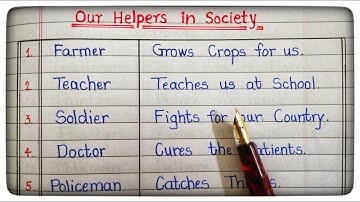 Our Helpers in Society
1. Farmer Grows Crops for us.
2. Teacher Teaches us at School.
3. Soldier Fights for our Country.
4. Doctor Cures the Patients.
5. Policeman Catches Thieves.